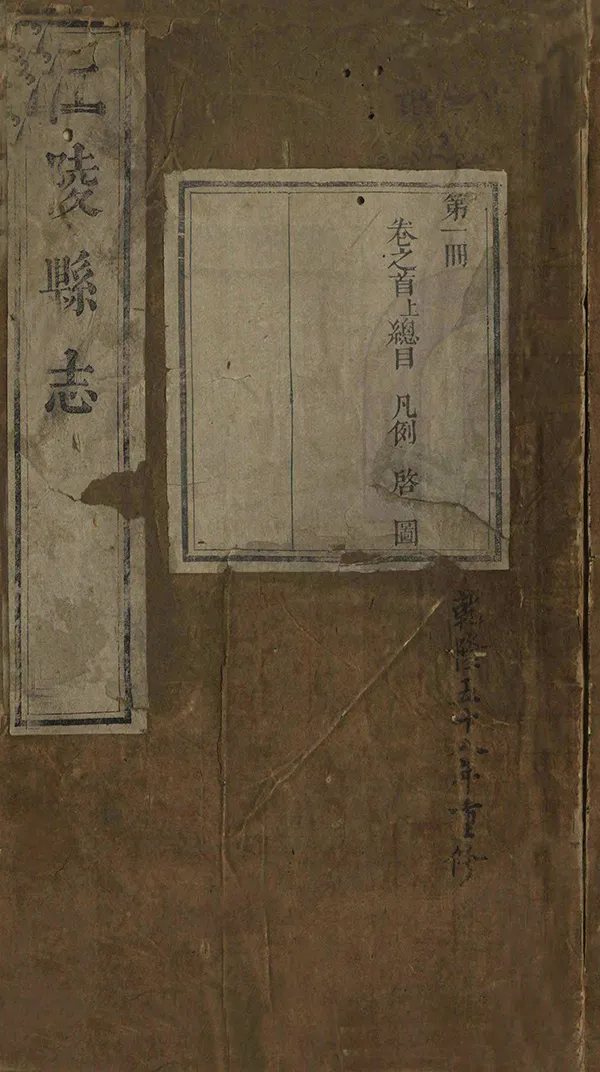 第一冊
卷之首上總目 凡例 啓 圖
乾隆五十八年重修
江陵縣志